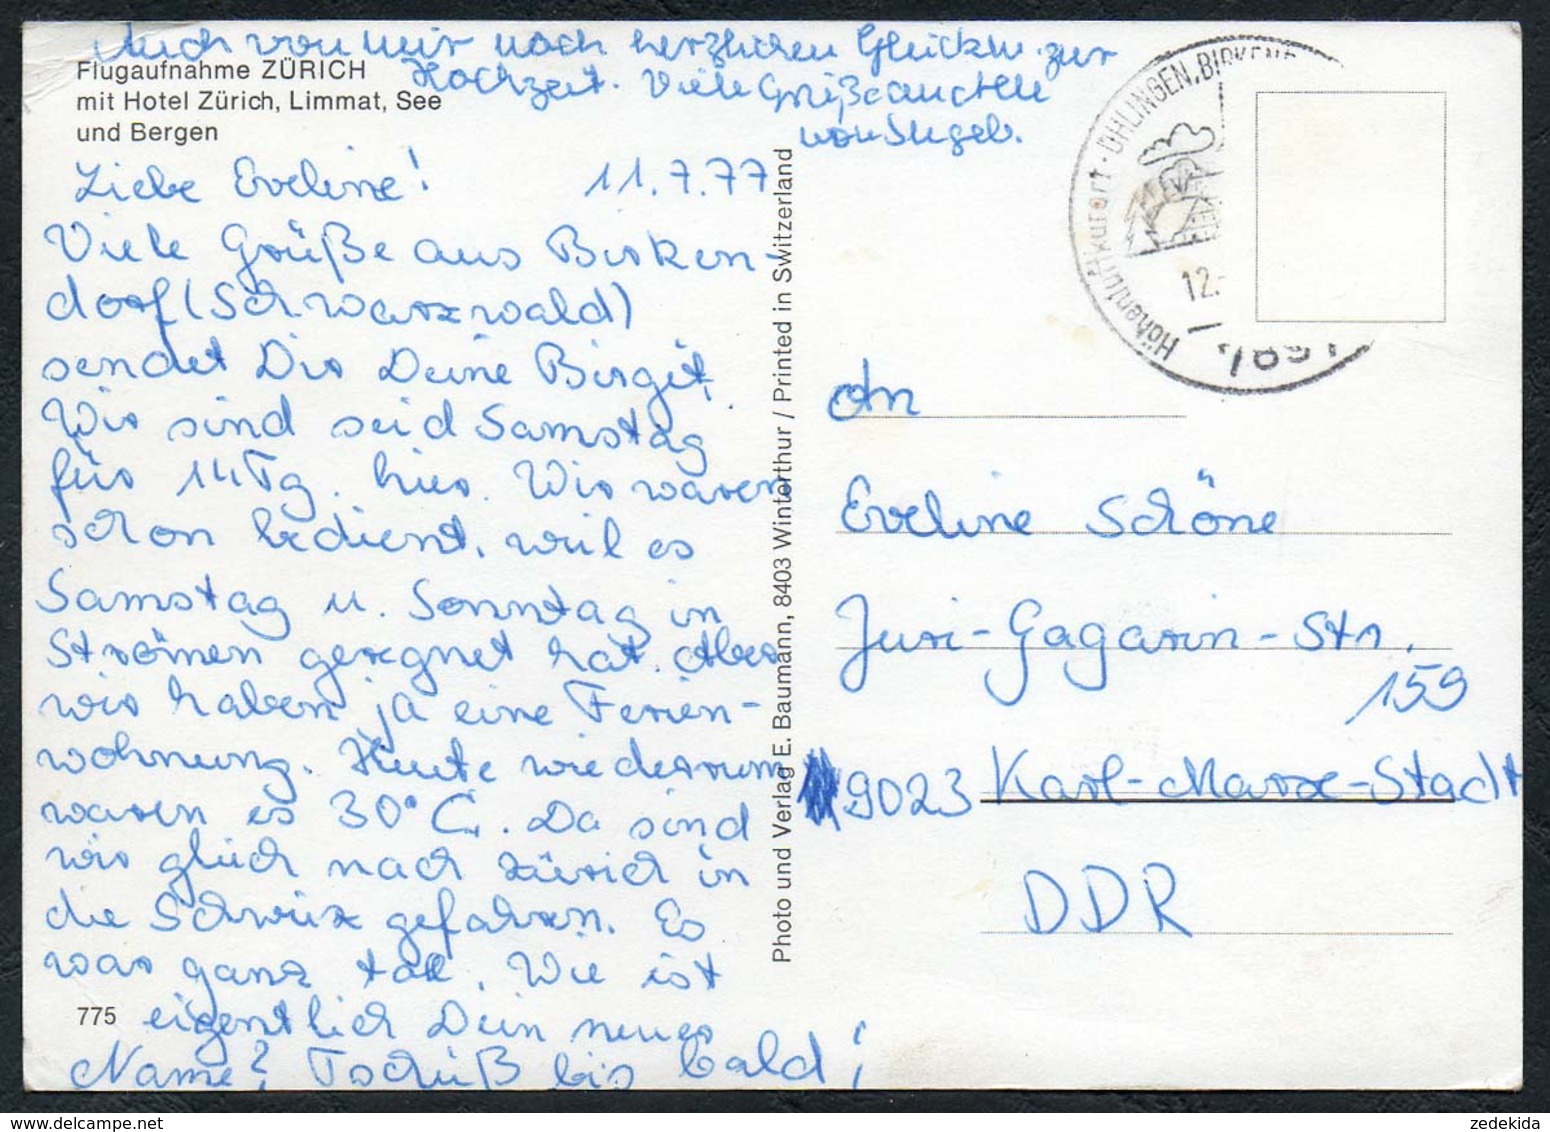 Auch von mir noch herzlichen Glückw. zur
Hochzeit. Viele Grüße an alle
von
Flugaufnahme ZÜRICH
mit Hotel Zürich, Limmat, See
und Bergen
Liebe Eveline! 11.7.77
Viele Grüße aus Birken-
dorf (Schwarzwald)
sendet Dir Deine Birgit.
Wir sind seid Samstag
für 14 Tg. hier. Wir waren
schon bedient, weil es
Samstag u. Sonntag in
Strömen geregnet hat. Aber
wir haben ja eine Ferien-
wohnung. Heute wiederrum
waren es 30°C. Da sind
wir gleich nach Zürich in
die Schweiz gefahren. Es
war ganz toll. Wie ist
775 eigentlich Dein neuer
Name? Tschüß bis bald!
Photo und Verlag E. Baumann, 8403 Winterthur / Printed in Switzerland
Höhenluftkurort · ÜHLINGEN-BIRKEND
12.-
7891
An
Eveline Schöne
Juri-Gagarin-Str.
159
9023 Karl-Marx-Stadt
DDR
zedekida